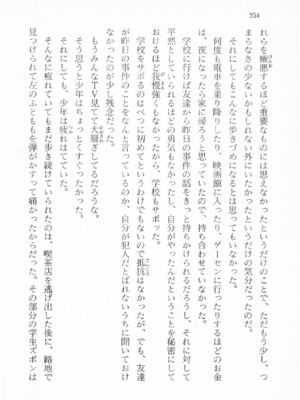 254
れらを機悪するほど重要なものには思えなかったというだけのことで、ただもう少し、つ
まらなさの少ないかもしれない外にいたかったというだけの気分だったのだ。
それにしてもこんなに歩きづめになるとは思ってもいなかった。
何度も電車を乗り降りしたり、映画館に入ったり、ゲーセンに行ったりするほどのお金
は、夜になったら家に帰ろうと思っていたので、持ち合わせていなかった。
学校に行けば友達から昨日の事件の話をきっと持ちかけられるだろうし、それに対して
平然としていられるほどの勇気もなかったし、自分がやったんだということを秘密にして
おけるほど我慢強くもなかったから、学校もサボった。
学校をサボるのはべつに初めてというわけでもないので抵抗はなかったが、でも、友達
が昨日の事件のことをなんと言っているのか、自分が犯人だとばれないうちに聞いておけ
なかったのが少し残念だった。
もうみんなTV見てて大騒ぎしてるだろうな。
そう思うと少年はちょっとすくってたかった。
それにしても、少年は疲れはてていた。
そんなに疲れていてもまだ歩き続けていられたのは、喫茶店を逃げ出した後に、路地で
見つけられて左のふとももを弾がかすって痛かったからだった。その部分の学生ズボンは